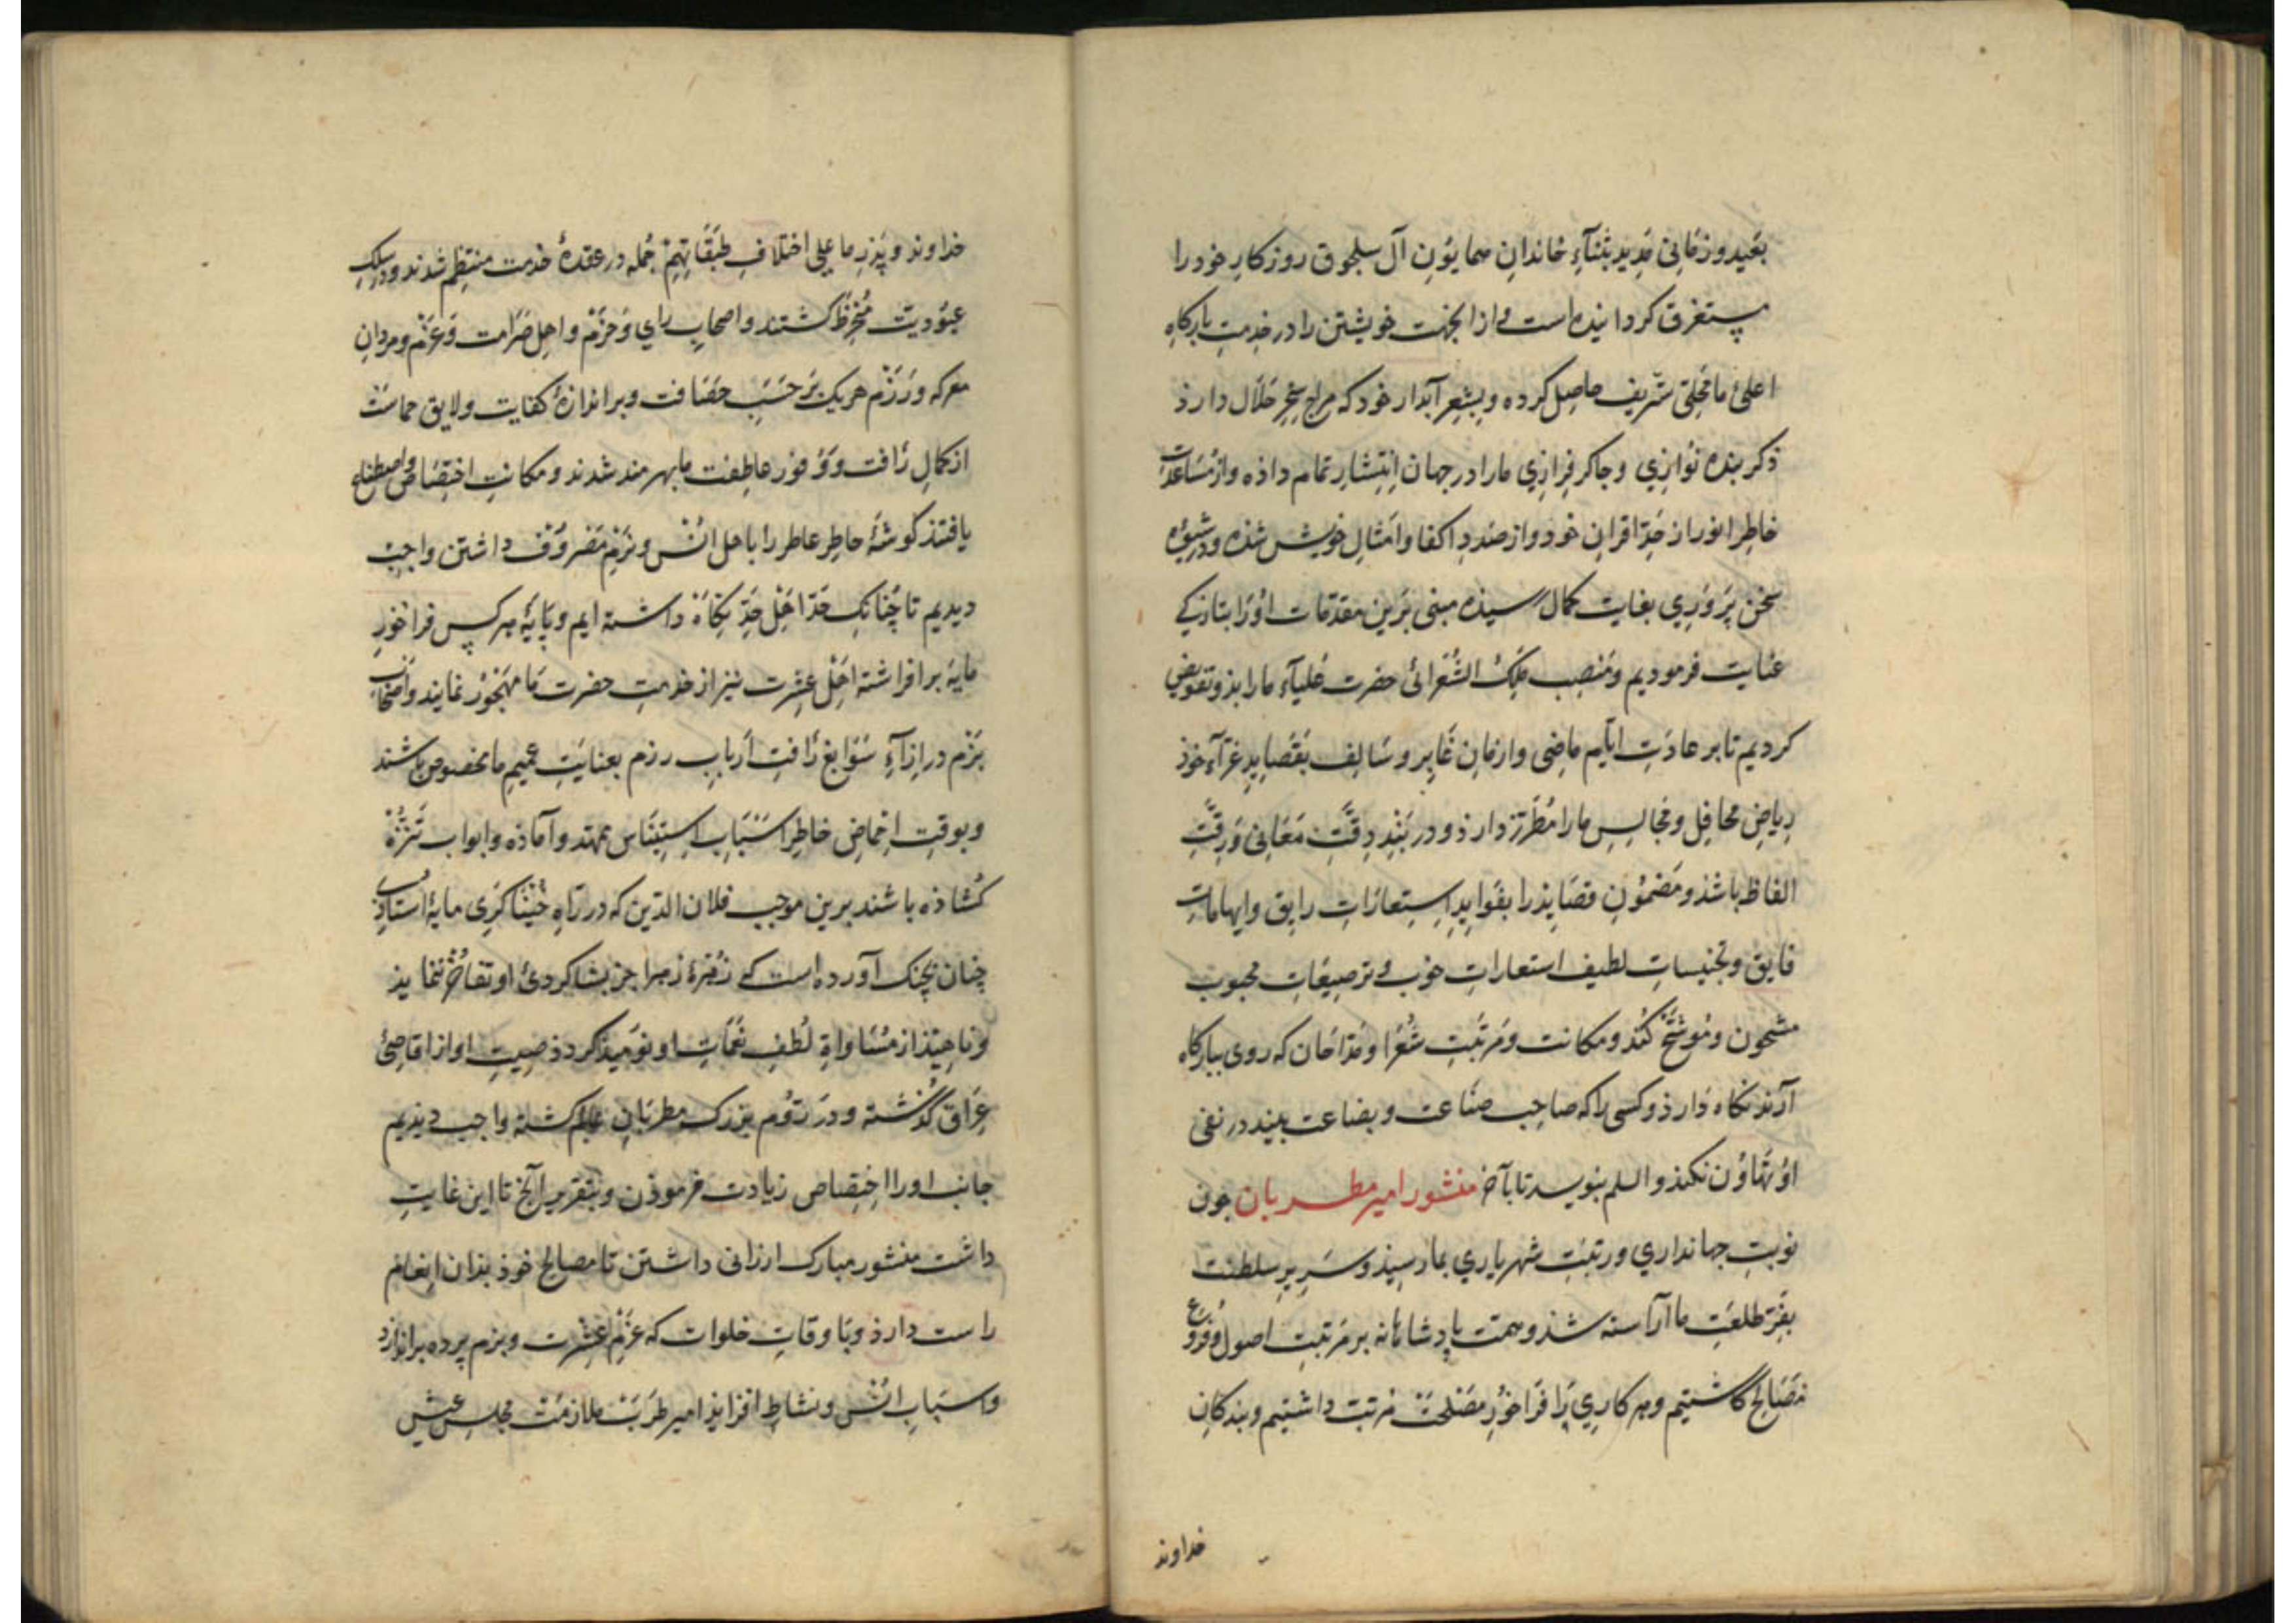 بعید و زمانی مدید بثنآءِ خاندانِ همایونِ آل سلجوق روزکارِ خود را
مستغرق کردانیده است و از انجهت خویشتن را در خدمتِ بارکاهِ
اعلیٰ ما محلی شریف حاصل کرده و بشعرِ آبدار خود که مزاج سِحرِ حَلال دارذ
ذکر بنده نوازی و جاکر فرازی ما را در جهان انتشارِ تمام داذه و از مُساعدت
خاطرِ انور از حدِّ اقرانِ خود و از صددِ اکفا و امثالِ خویش شذه و در شیوه
سخن پَروَری بغایت کمال رسیذه مبنی بَرین مقدّمات اورا بتازکی
عنایت فرمودیم و مَنصِب مَلِکُ الشُعَرائیِ حضرت عَلیآءِ ما را بذو تفویض
کردیم تا بر عادَتِ ایّامِ ماضی و ازمانِ غابِر و سَالِف بقَصَایدِ غرّآءِ خوذ
ریاضِ محافِل و مجالِسِ ما را مُطَرَّز دارذ و در بَندِ دِقّتِ مَعَانی و رِقّتِ
الفاظ باشذ و مَضمُونِ قصَایذ را بفَوایدِ اِستِعارَاتِ رایق و ایهاماتِ
فایق و تجنیساتِ لطیف استعاراتِ خوب و ترصیعَاتِ محبوب
مشحون و مُوشَّح کند و مکانت و مَرتَبتِ شُعَرا و مَدّاحَان که روی ببارکاه
آرند نکاه دارذ و کسی را که صاحِب صنَاعت و بضاعت بیند در نفیِ
او تهاوُن نکنذ والسلم بنویسد تا بآخر منشور امیر مطربان جون
نوبتِ جهانداری و رتبتِ شهریاری بما رسیذ و سَریرِ سلطنت
بفرّ طلعَتِ ما آراسته شذ و همّت پاذشاهانه بر مَرتبتِ اصول و فروع
مَصَالح کماشتیم و هر کاری را فراخُورِ مَصلحَت مرتب داشتیم و بندکانِ
خداوند
خداوند و پذرِ ما علی اختلافِ طبقَاتِهِم جُمله در عقدهٔ خدمت منتظِم شدند و در سِلکِ
عبودیت مُنخرِط کشتند و اصحابِ رای و حَزم و اهلِ صَرامت و عَزم و مردانِ
معرکه و رَزم هریک بَر حَسَبِ حصَافت و بر اندازهٔ کفایت و لایق حماست
از کمالِ رأفت و وُفور عاطفت ما بهرمند شدند و مکانتِ اختِصَاص و اصطناع
یافتند کوشهٔ خاطِرِ عاطر را باهلِ اُنس و بَزم مصروف داشتن واجب
دیدیم تا چُنانک حَدّ اهلِ جدّ نکاه داشته ایم و پایهٔ هر کس فراخورِ
مایه برافراشته اهلِ عِشرت نیز از خدمتِ حضرت ما مهجُور نمایند و اصحاب
بزم در ازآءِ سَوابغِ رأفتِ اَربابِ رزم بعنایتِ عمیمِ ما مخصوص باشند
و بوقتِ اِحماضِ خاطر اسبَابِ اِستیناس ممهّد و آماذه و ابواب تنزّه
کشاذه باشند برین موجب فلان الدّین که در راهِ خُنیاکری مایهٔ استاذی
چنان بچنک آورده است که زُهرهٔ زهرا جز بشاکردیِ او تفاخُر ننمایذ
و ناهیذ از مُسَاواةِ لُطفِ نغمَاتِ او نومیذ کردذ صِیتِ او از اقاصیِ
عراق کذشته و در رُوم بزرک مطربَانِ عالم کشته واجب دیذیم
جانبِ او را اختِصَاصِ زیادت فرموذن و بتقریرِ آنج تا این غایت
داشت منشورِ مبارک ارزانی داشتن تا مصالحِ خوذ بذان انعام
راست دارذ و باوقاتِ خلوات که عَزمِ عِشرت و بزم پرده براندازد
و اسبابِ اُنس و نشاط افزایذ امیر طَرَب ملازمتِ مجلسِ عیش